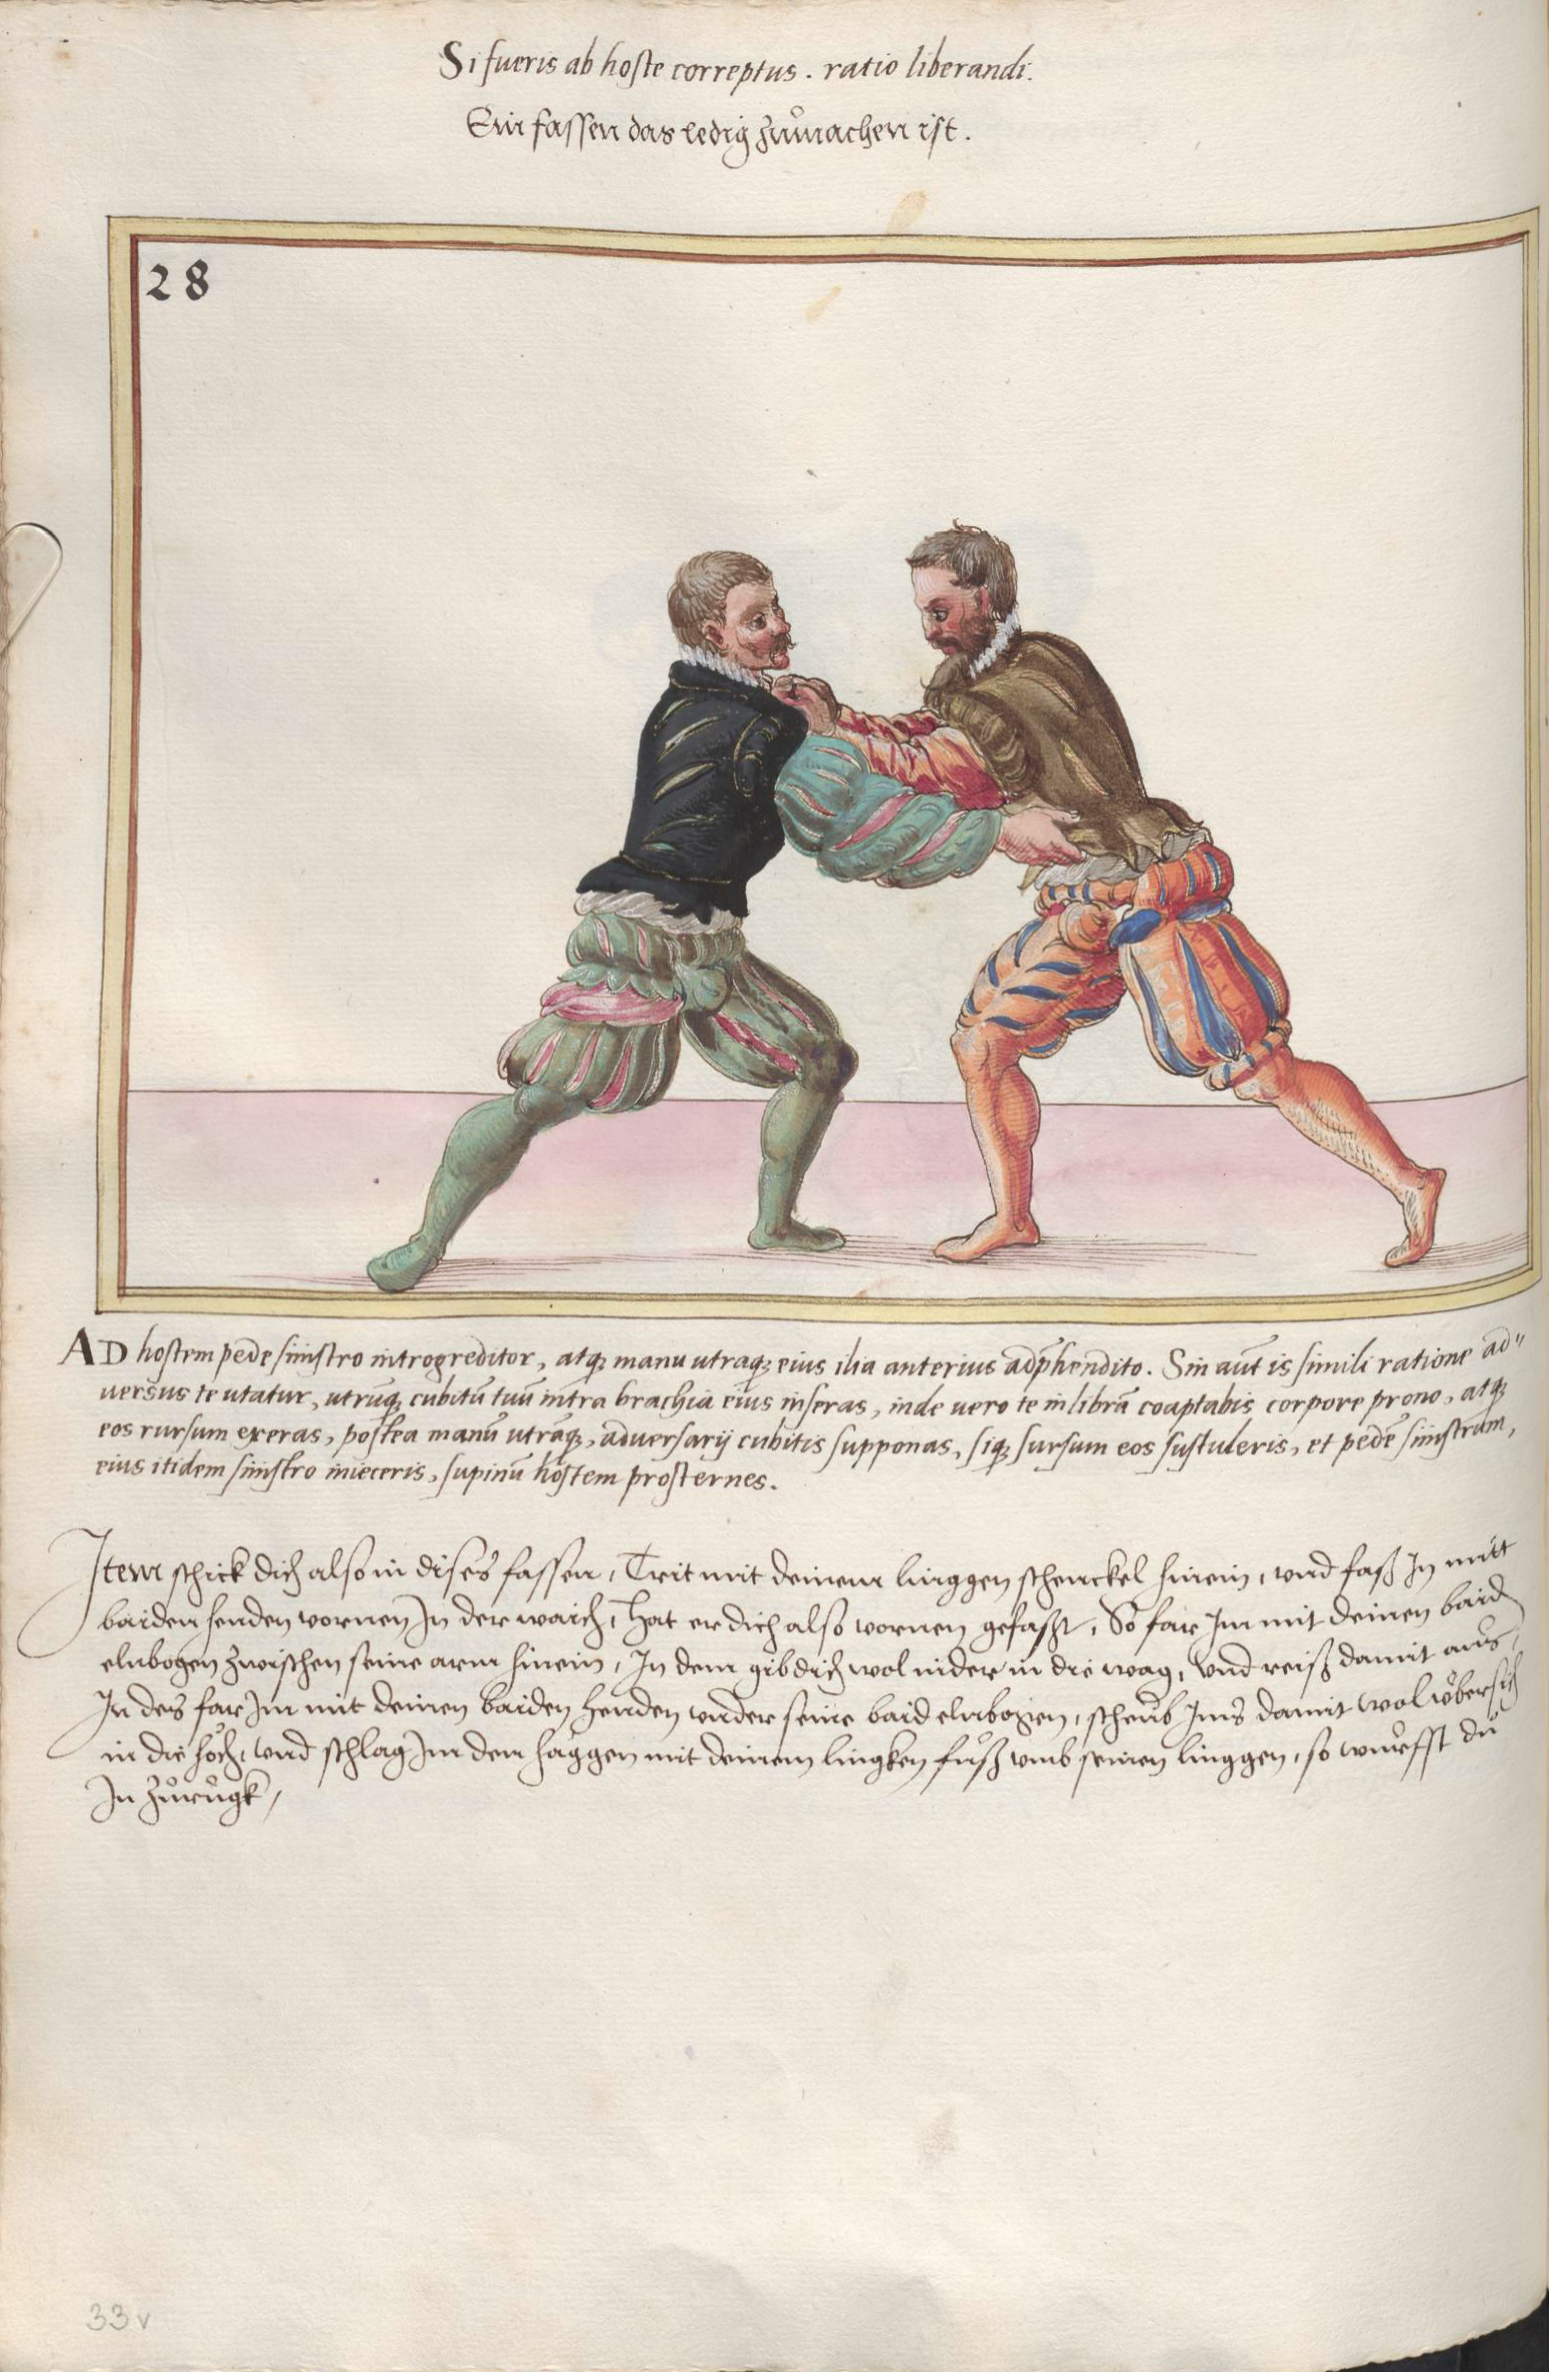 Si fueris ab hoste correptus. ratio liberandi.
Ein fassen das ledig zůmachen ist.
28
AD hostem pede sinistro introgreditor, atq̃ꝫ manu utraq̃ꝫ eius ilia anterius adp̃hendito. Sin aut̃ is simili ratione ad"
uersus te utatur, utrũqꝫ cubitũ tuũ intra brachia eius inseras, inde uero te in librã coaptabis corpore prono, atqꝫ
eos rursum exeras, postea manũ utrãqꝫ, aduersarij cubitis supponas, siqꝫ sursum eos sustuleris, et pedẽ sinistrum,
eius itidem sinistro inieceris, supinũ hostem prosternes.
Item schick dich also in dises fassen, Trit mit deinem linggen schenckel hinein, vnd faß Jn mitt
baiden henden vornen Jn der waich, Hat er dich also vornen gefaßt, So far Jm mit deinen baid
elnbogen zwischen seine arm hinein, Jn dem gib dich wol nider in die wag, vnd reiß damit aus,
Jn des far Jm mit deinen baiden henden vnder seine baid elnbogen, scheub Jms damit wol v̊bersich
in die höch, vnd schlag Jm den haggen mit deinem lingken fůß vmb seinen linggen, so wůrfst du
Jn zůrůgk,
33 v